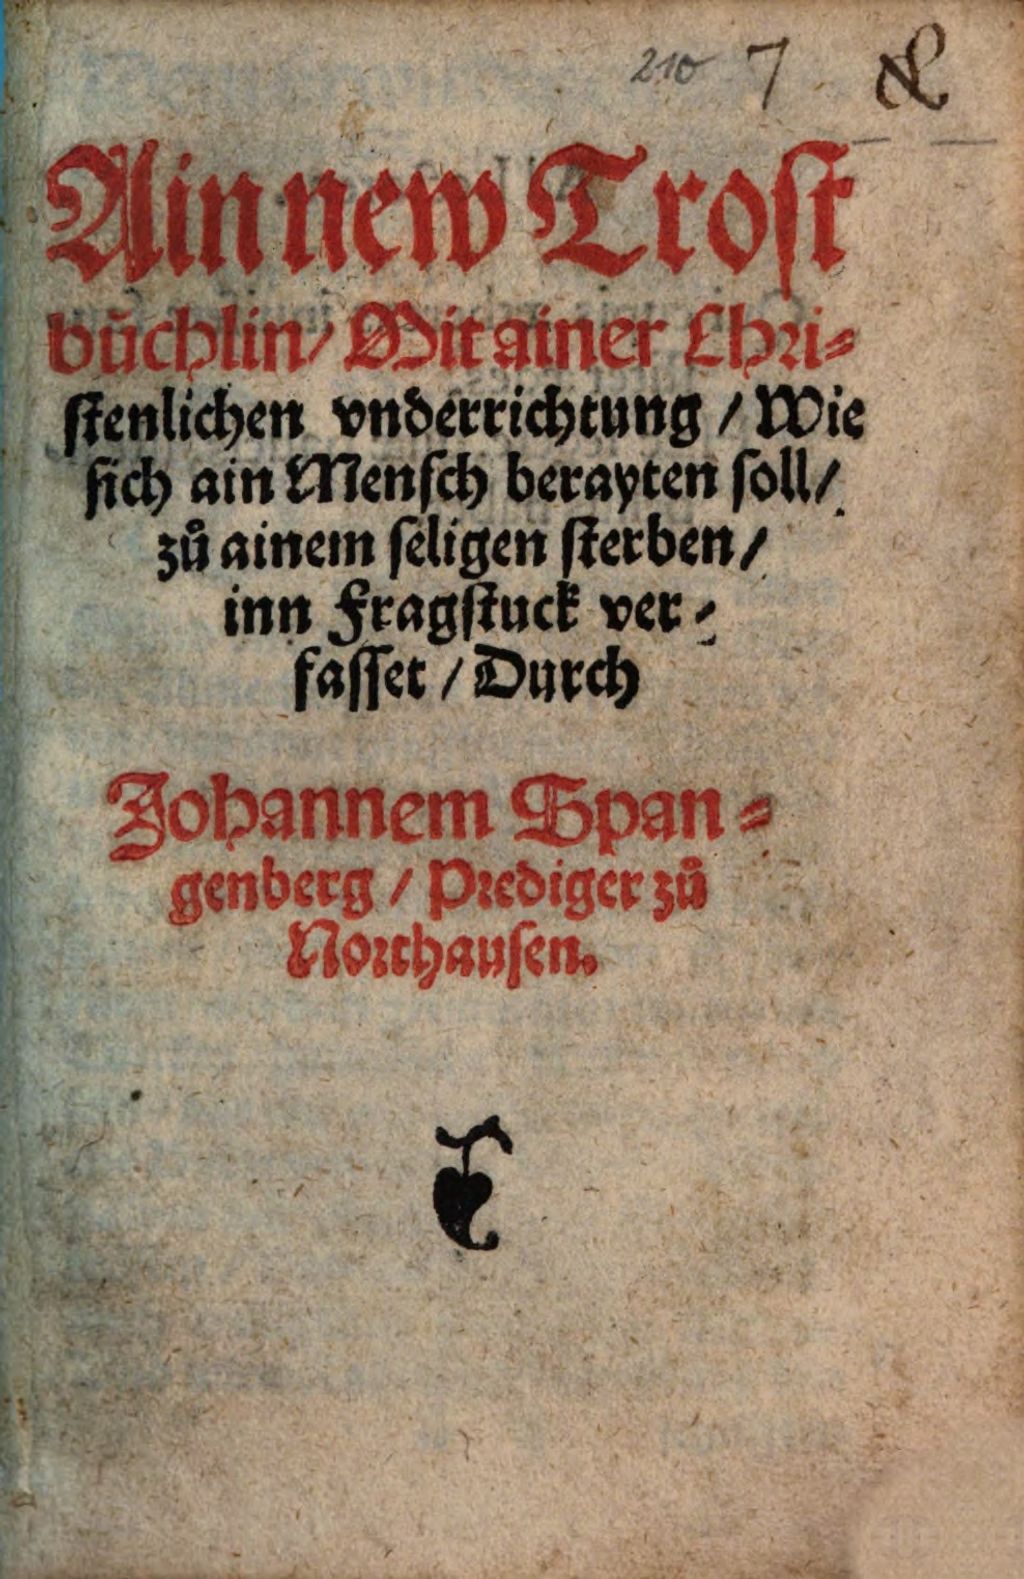 210 7
Ain new Trost
buͤchlin / Mit ainer Chri⸗
stenlichen vnderrichtung / Wie
sich ain Mensch berayten soll /
zů ainem seligen sterben /
inn Fragstuck ver⸗
fasset / Durch
Johannem Span⸗
genberg / Prediger zů
Northausen.